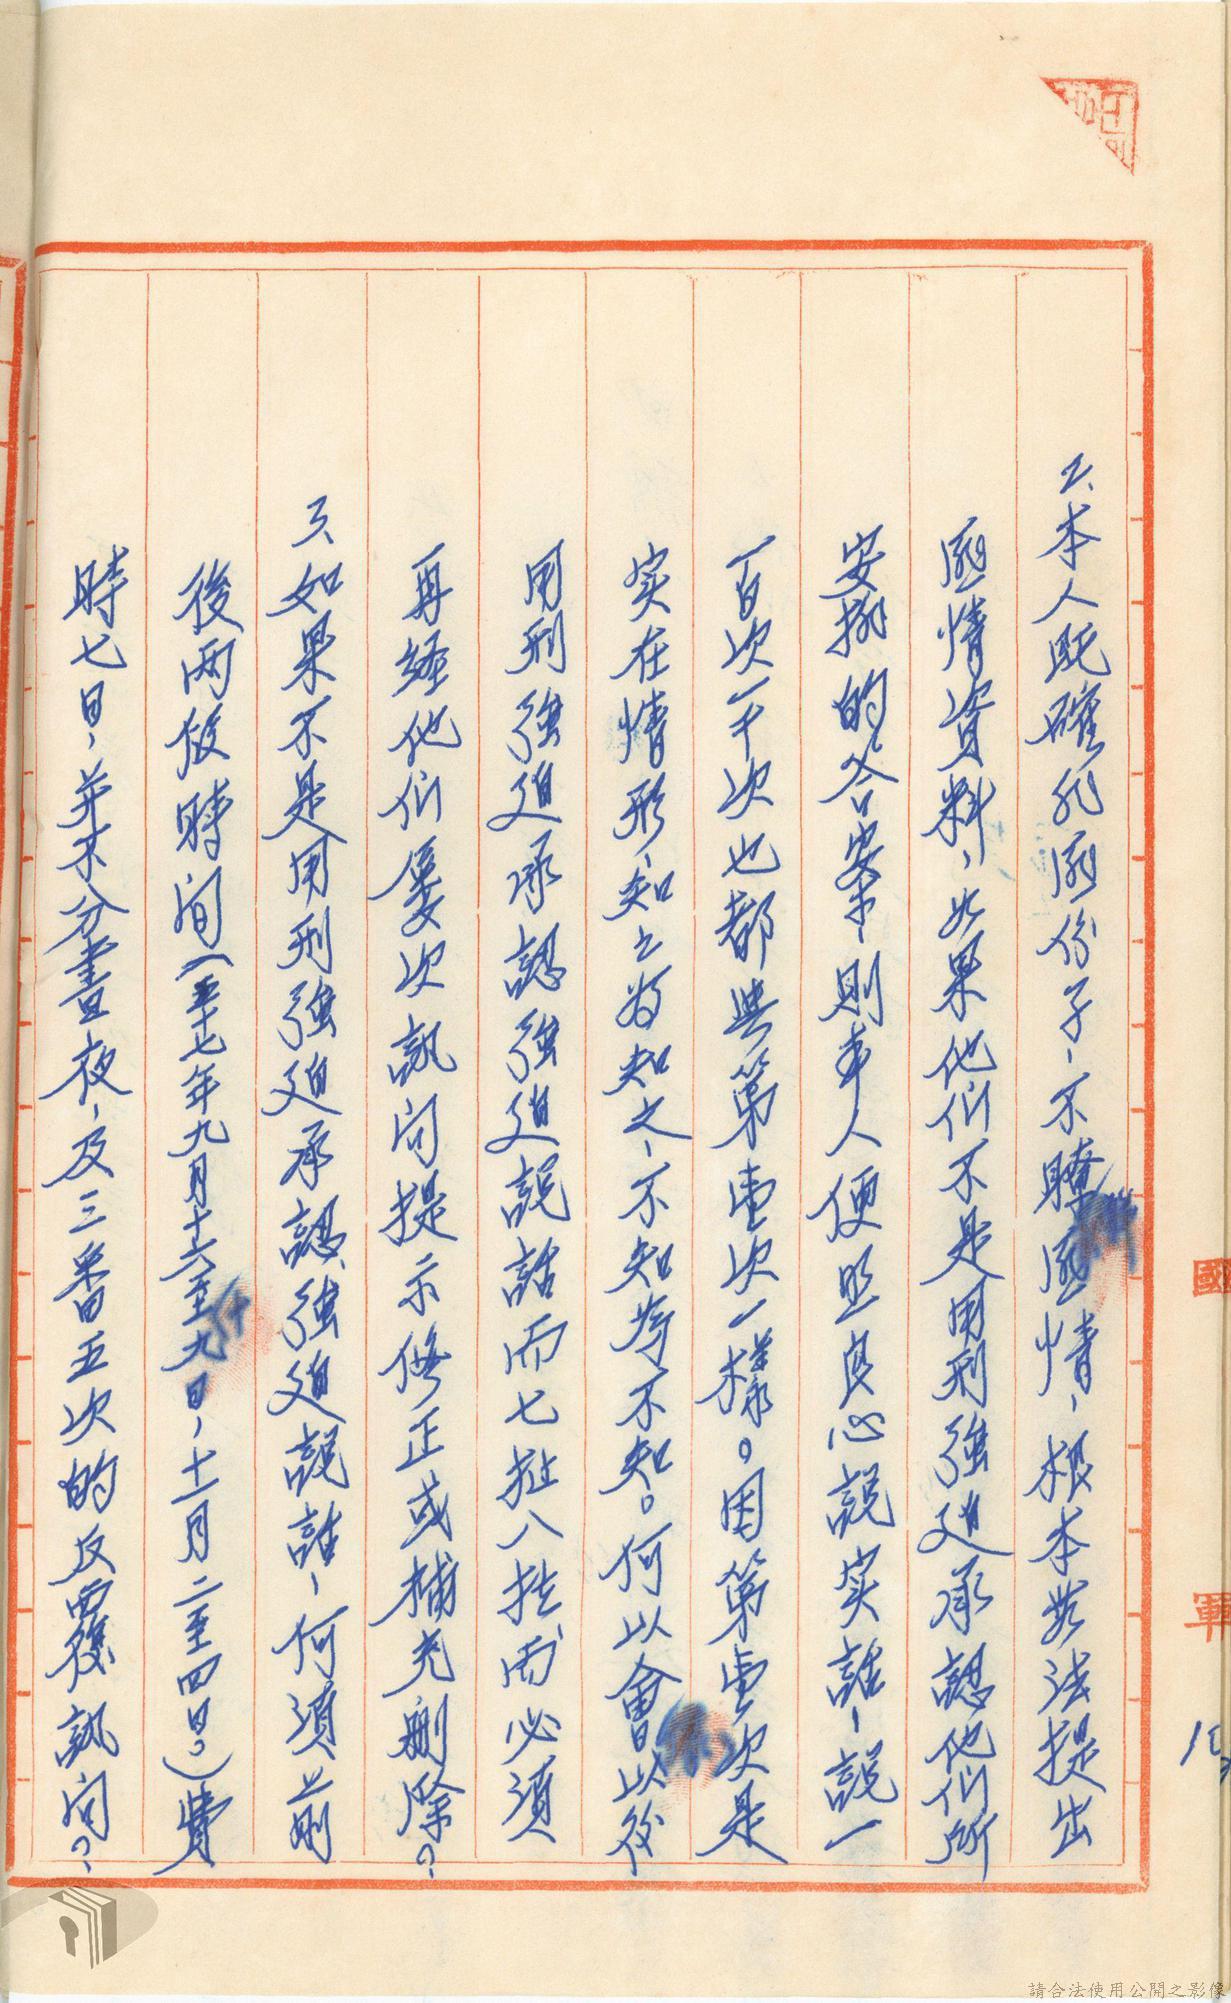 2、本人既確非匪份子，不瞭匪情，根本無法提出
匪情資料，如果他们不是用刑強迫承認他们所
安排的答案，則本人便照良心說实話，說一
百次一千次也都與第壹次一樣。因第壹次是
实在情形，知之为知之，不知為不知。何以會以後
用刑強迫承認強迫說話而七扯八扯而必須
再経他们屢次訊问提示修正或補充刪除？
3、如果不是用刑強迫承認強迫說話，何須前
後兩段時间（五十七年九月十六至十九日，十一月二至四日。）費
時七日，并不分晝夜，及三番五次的反覆訊问？
國
軍
請合法使用公開之影像